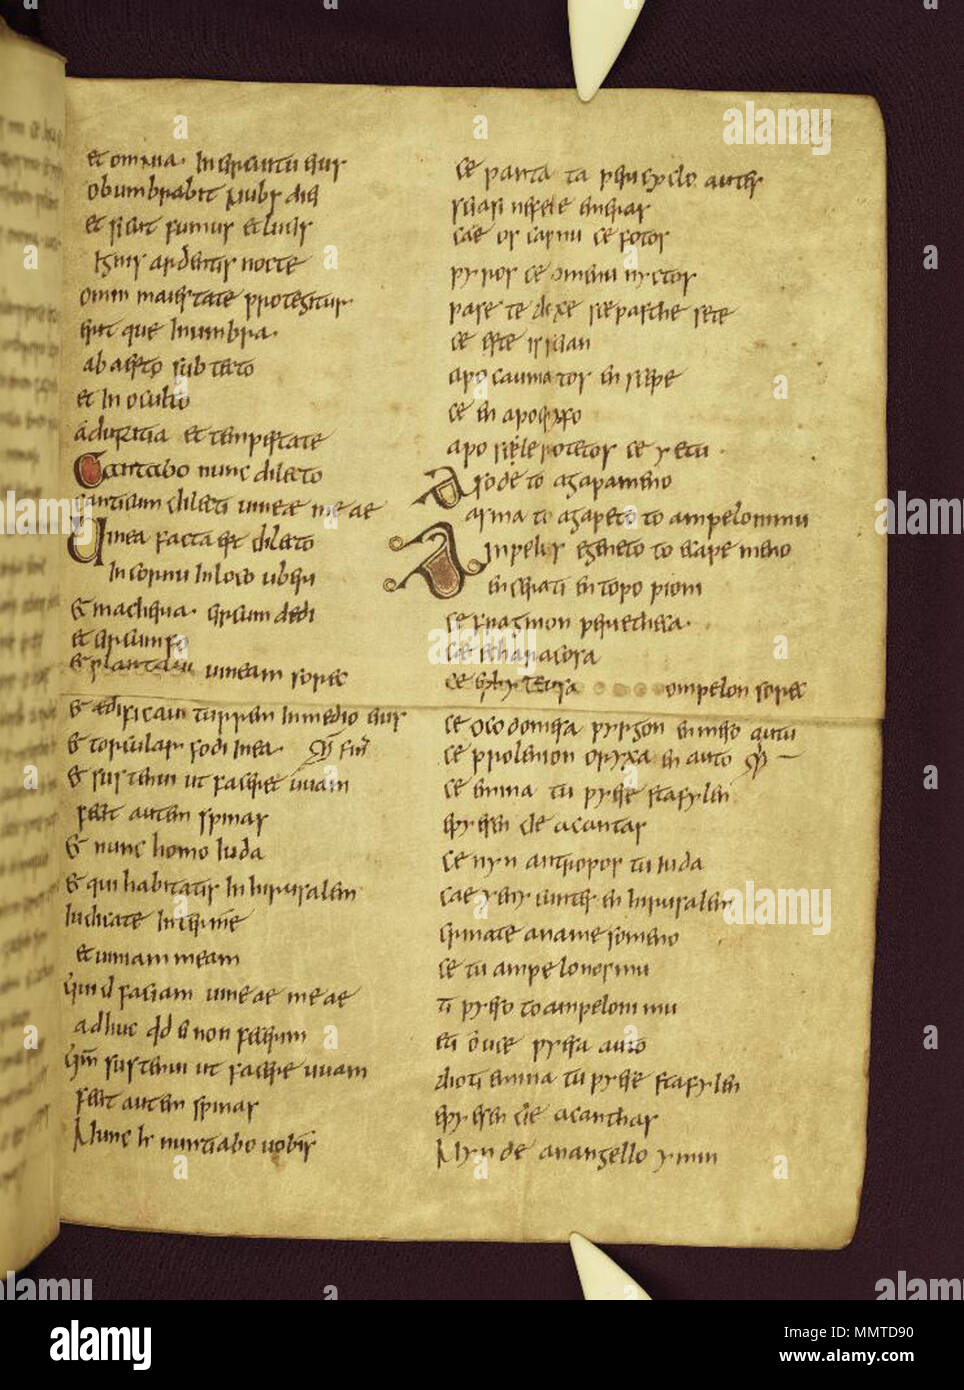 et omnia. In circuitu eius
obumbrabit nubs die
et sicut fumus et lucis
Ignis ardentis nocte
omni maiestate protegitur
erit que In umbra.
ab aesto sub tecto
et In oculto
aduritia et tempestate
Cantabo nunc dilecto
canticum dilecti uineae meae
Uinea facta est dilecto
In cornu In loco uberi
& maceria. circum dedi
et circum fo
& plantaui uineam sorec
& aedificaui turrem In medio eius
& torcular fodi In ea.
& sustenui ut faceret uuam
fecit autem spinas
& nunc homo Iuda
& qui habitatis In hierusalem
Iudicate Inter me
et uiniam meam
quid faciam uineae meae
adhuc quod & non feci ei
quem sustenui ut faceret uuam
fecit autem spinas
Nunc uobis
ce panta ta pericyclo autes
sciasi nefele emeras
cae os capnu ce fotos
pyros ce omenu nyctos
pase te doxe scepasthe sete
ce este is scian
apo caumatos en scepe
ce en apocryfo
apo sclerotetos ce yetu.
Aso de to agapameno
asma to agapeto to ampeloni mu
Ampelos egeneto to egapemeno
en cerati en topo pioni
ce fragmon periethica.
ce echaracosa
ce ephyteusa ompelon sorec
ce ocodomesa pyrgon en meso autu
ce prolenion oryxa en auto
ce emina tu pyese stafylen
epyesen de acantas
ce nyn antropos tu Iuda
cae y en yicuntes en hierusalem
crinate aname so meno
ce tu ampelonos mu
ti pyeso to ampeloni mu
eti o uce pyesa auto
dioti emina tu pyese stafylen
epyesen de acanthas
Nyn de anangello ymin
alamy
Image ID: MMTD90
www.alamy.com